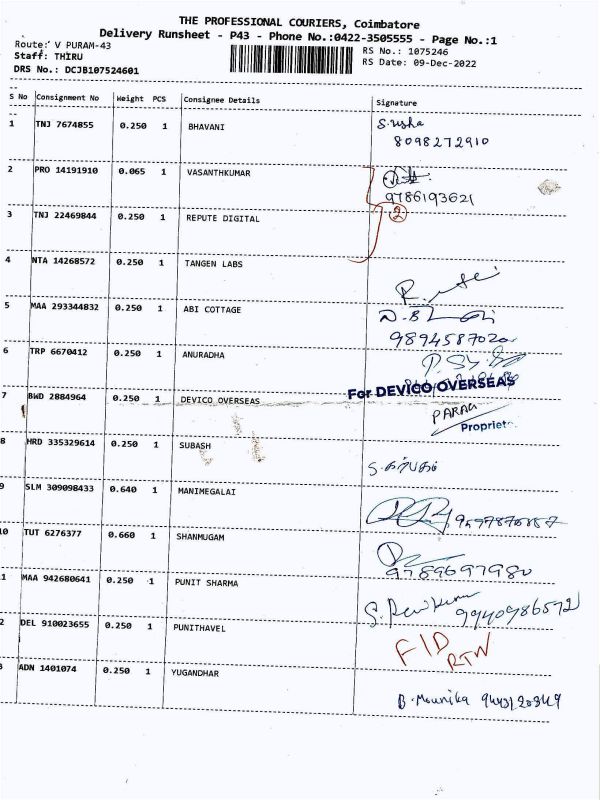 THE PROFESSIONAL COURIERS, Coimbatore
Delivery Runsheet - P43 - Phone No.:0422-3505555 - Page No.:1
Route: V PURAM-43
RS No.: 1075246
Staff: THIRU
RS Date: 09-Dec-2022
DRS No.: DCJB107524601
S No Consignment No Weight PCS Consignee Details Signature
1 TNJ 7674855 0.250 1 BHAVANI S.usha
8098272910
2 PRO 14191910 0.065 1 VASANTHKUMAR
9786193621
3 TNJ 22469844 0.250 1 REPUTE DIGITAL 2
4 NTA 14268572 0.250 1 TANGEN LABS
5 MAA 293344832 0.250 1 ABI COTTAGE
9894587020
6 TRP 6670412 0.250 1 ANURADHA
For DEVICO OVERSEAS
7 BWD 2884964 0.250 1 DEVICO OVERSEAS PARAG
Propriet
8 HRD 335329614 0.250 1 SUBASH
9 SLM 309098433 0.640 1 MANIMEGALAI
10 TUT 6276377 0.660 1 SHANMUGAM
9789697980
1 MAA 942680641 0.250 1 PUNIT SHARMA
9940986572
2 DEL 910023655 0.250 1 PUNITHAVEL F/D
RTN
3 ADN 1401074 0.250 1 YUGANDHAR
B. Mounika